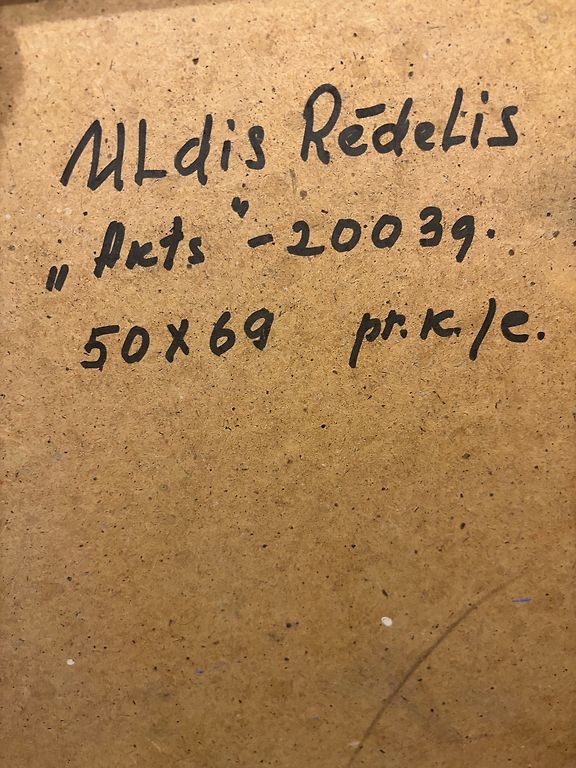 Uldis Rēdelis
„Akts" - 2003g.
50x69 pr.k./e.